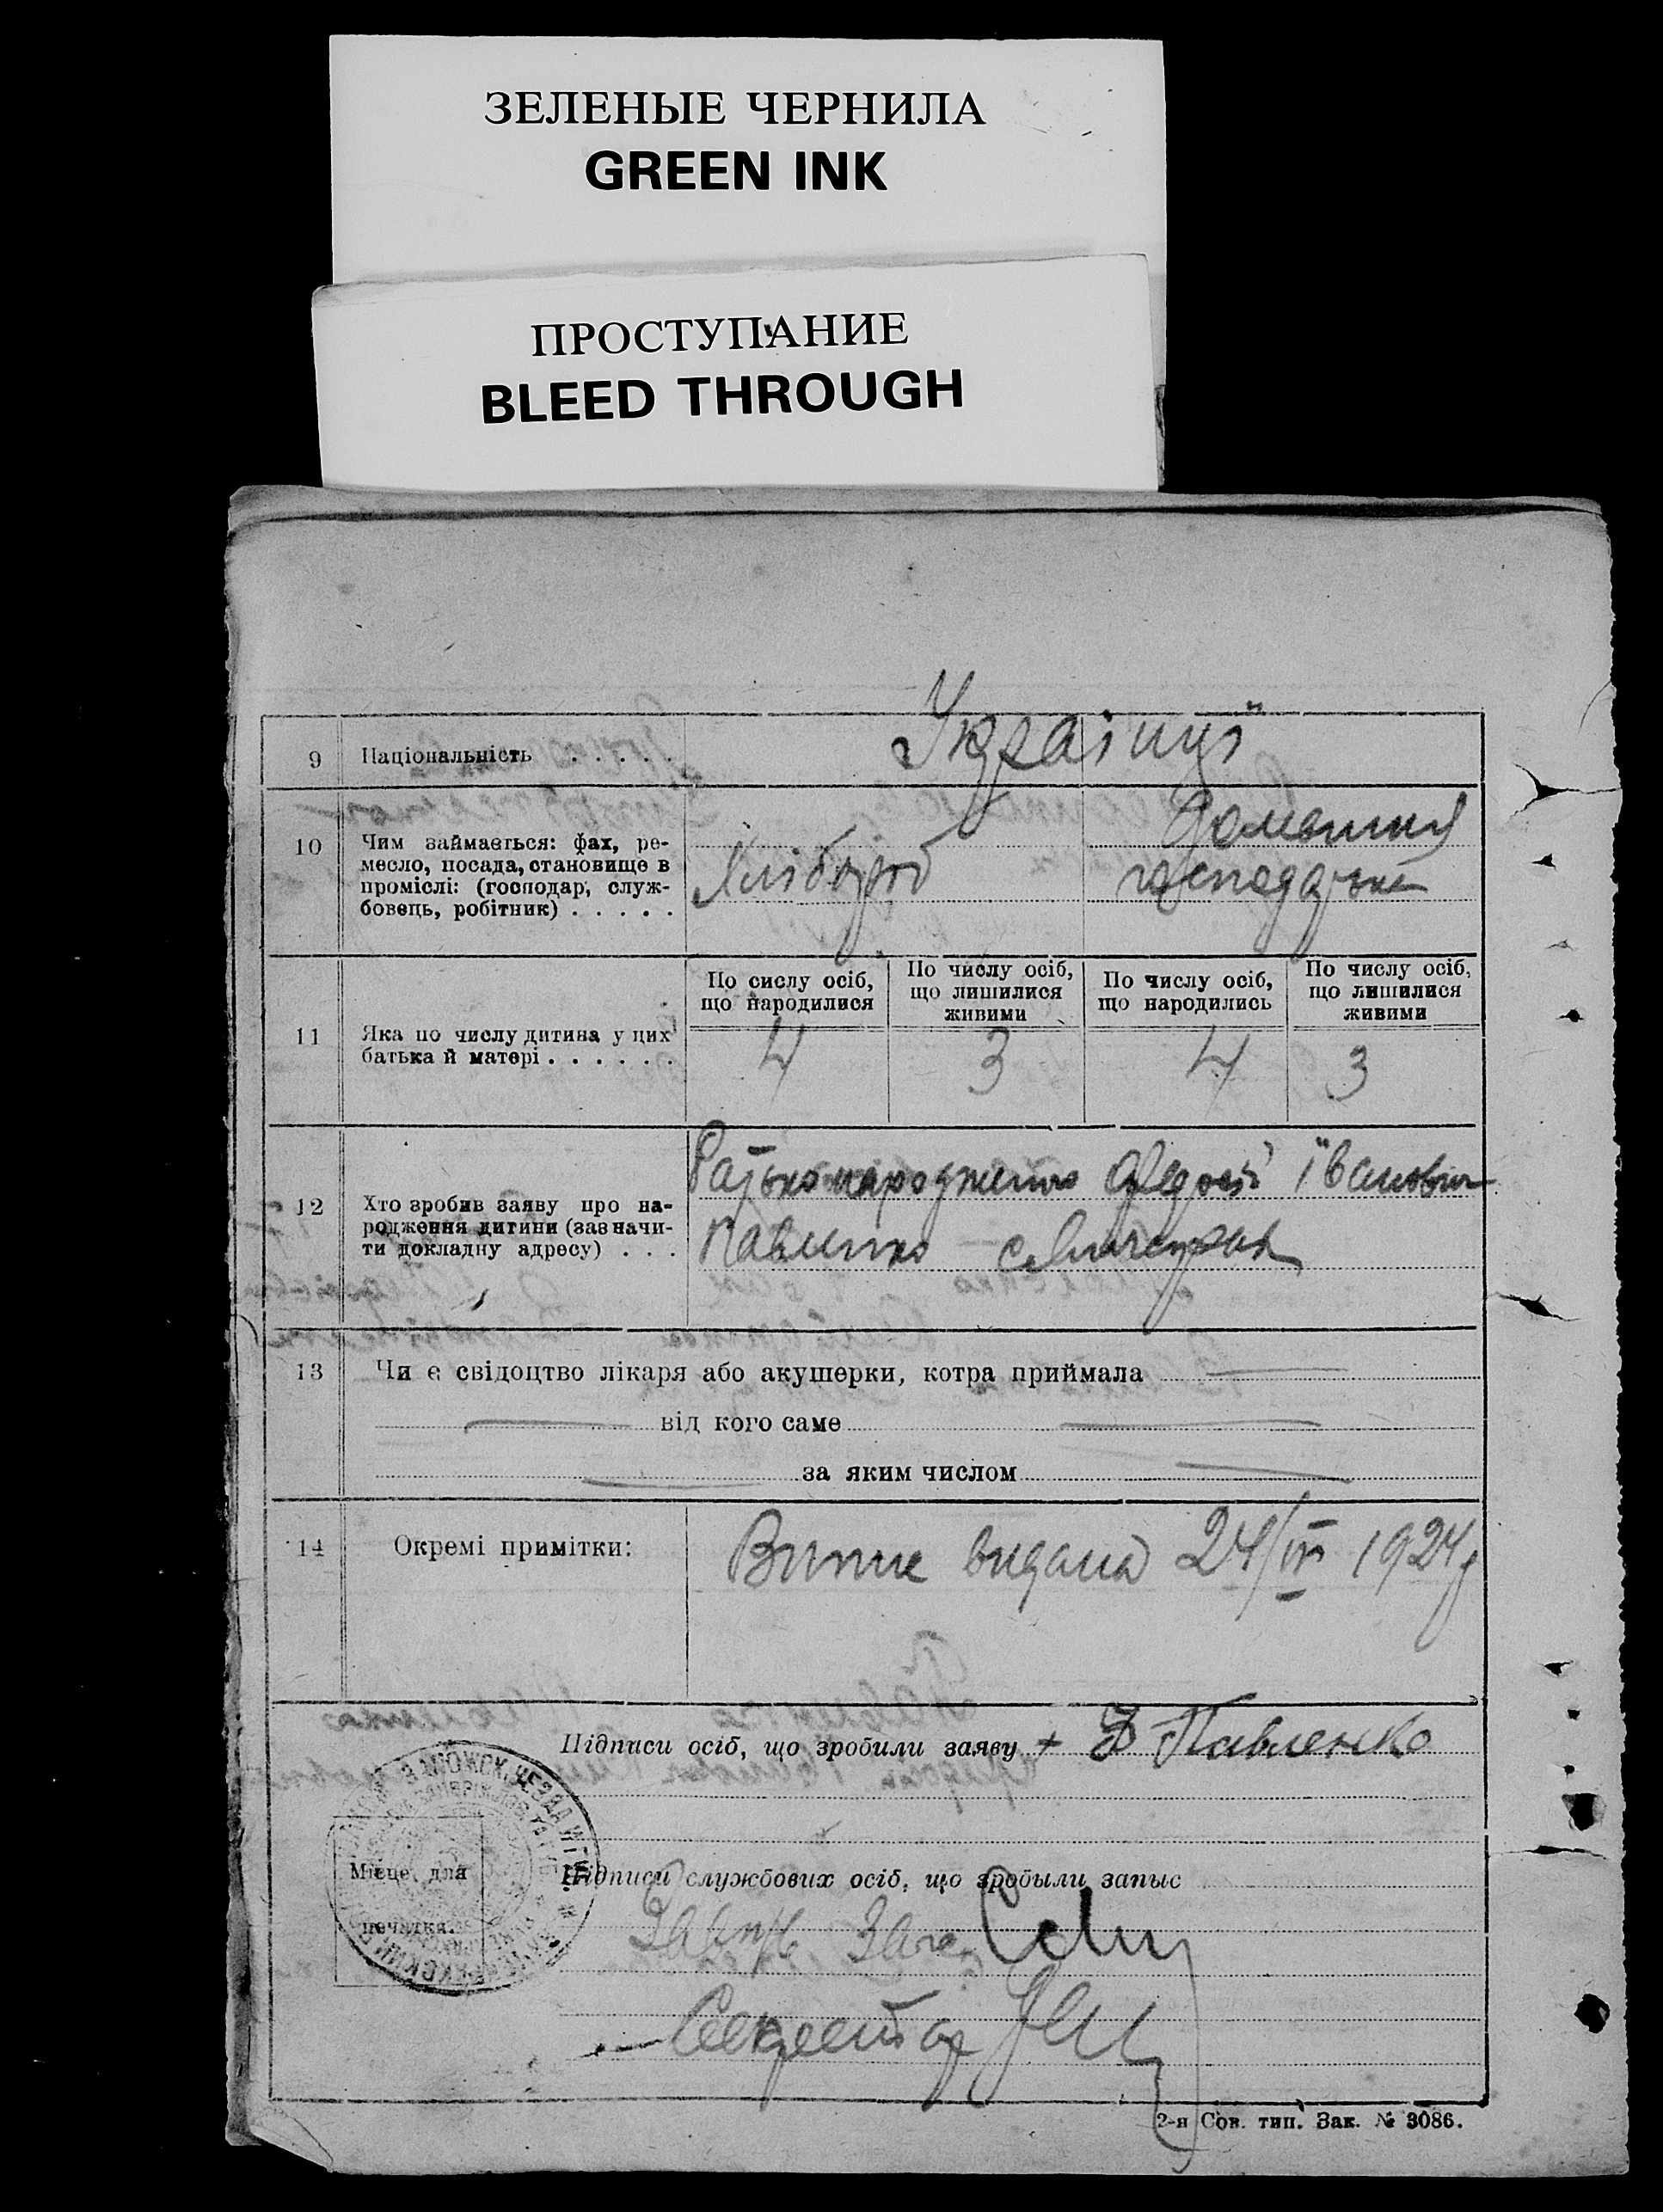 ЗЕЛЕНЫЕ ЧЕРНИЛА
GREEN INK
ПРОСТУПАНИЕ
BLEED THROUGH
9 Національність . . . . . Українці
10 Чим займається: фах, ре-
месло, посада, становище в
проміслі: (господар, служ-
бовець, робітник) . . . . .
Хлібороб
Домашня
господарка
11 Яка по числу дитина у цих
батька й матері . . . . . .
По сислу осіб,
що народилися
По числу осіб,
що лишилися
живими
По числу осіб,
що народились
По числу осіб,
що лишилися
живими
4 3 4 3
12 Хто зробив заяву про на-
родження дитини (зазначи-
ти докладну адресу) . . .
Батько Федосій Іванович
Павленко
13 Чи є свідоцтво лікаря або акушерки, котра приймала
від кого саме
за яким числом
14 Окремі примітки:
видана 24/ 1924
Підписи осіб, що зробили заяву + Павленко
Місце для
печатки.
Підписи службових осіб, що зробыли запыс
Секретар
2-я Сов. тип. Зак. № 3086.